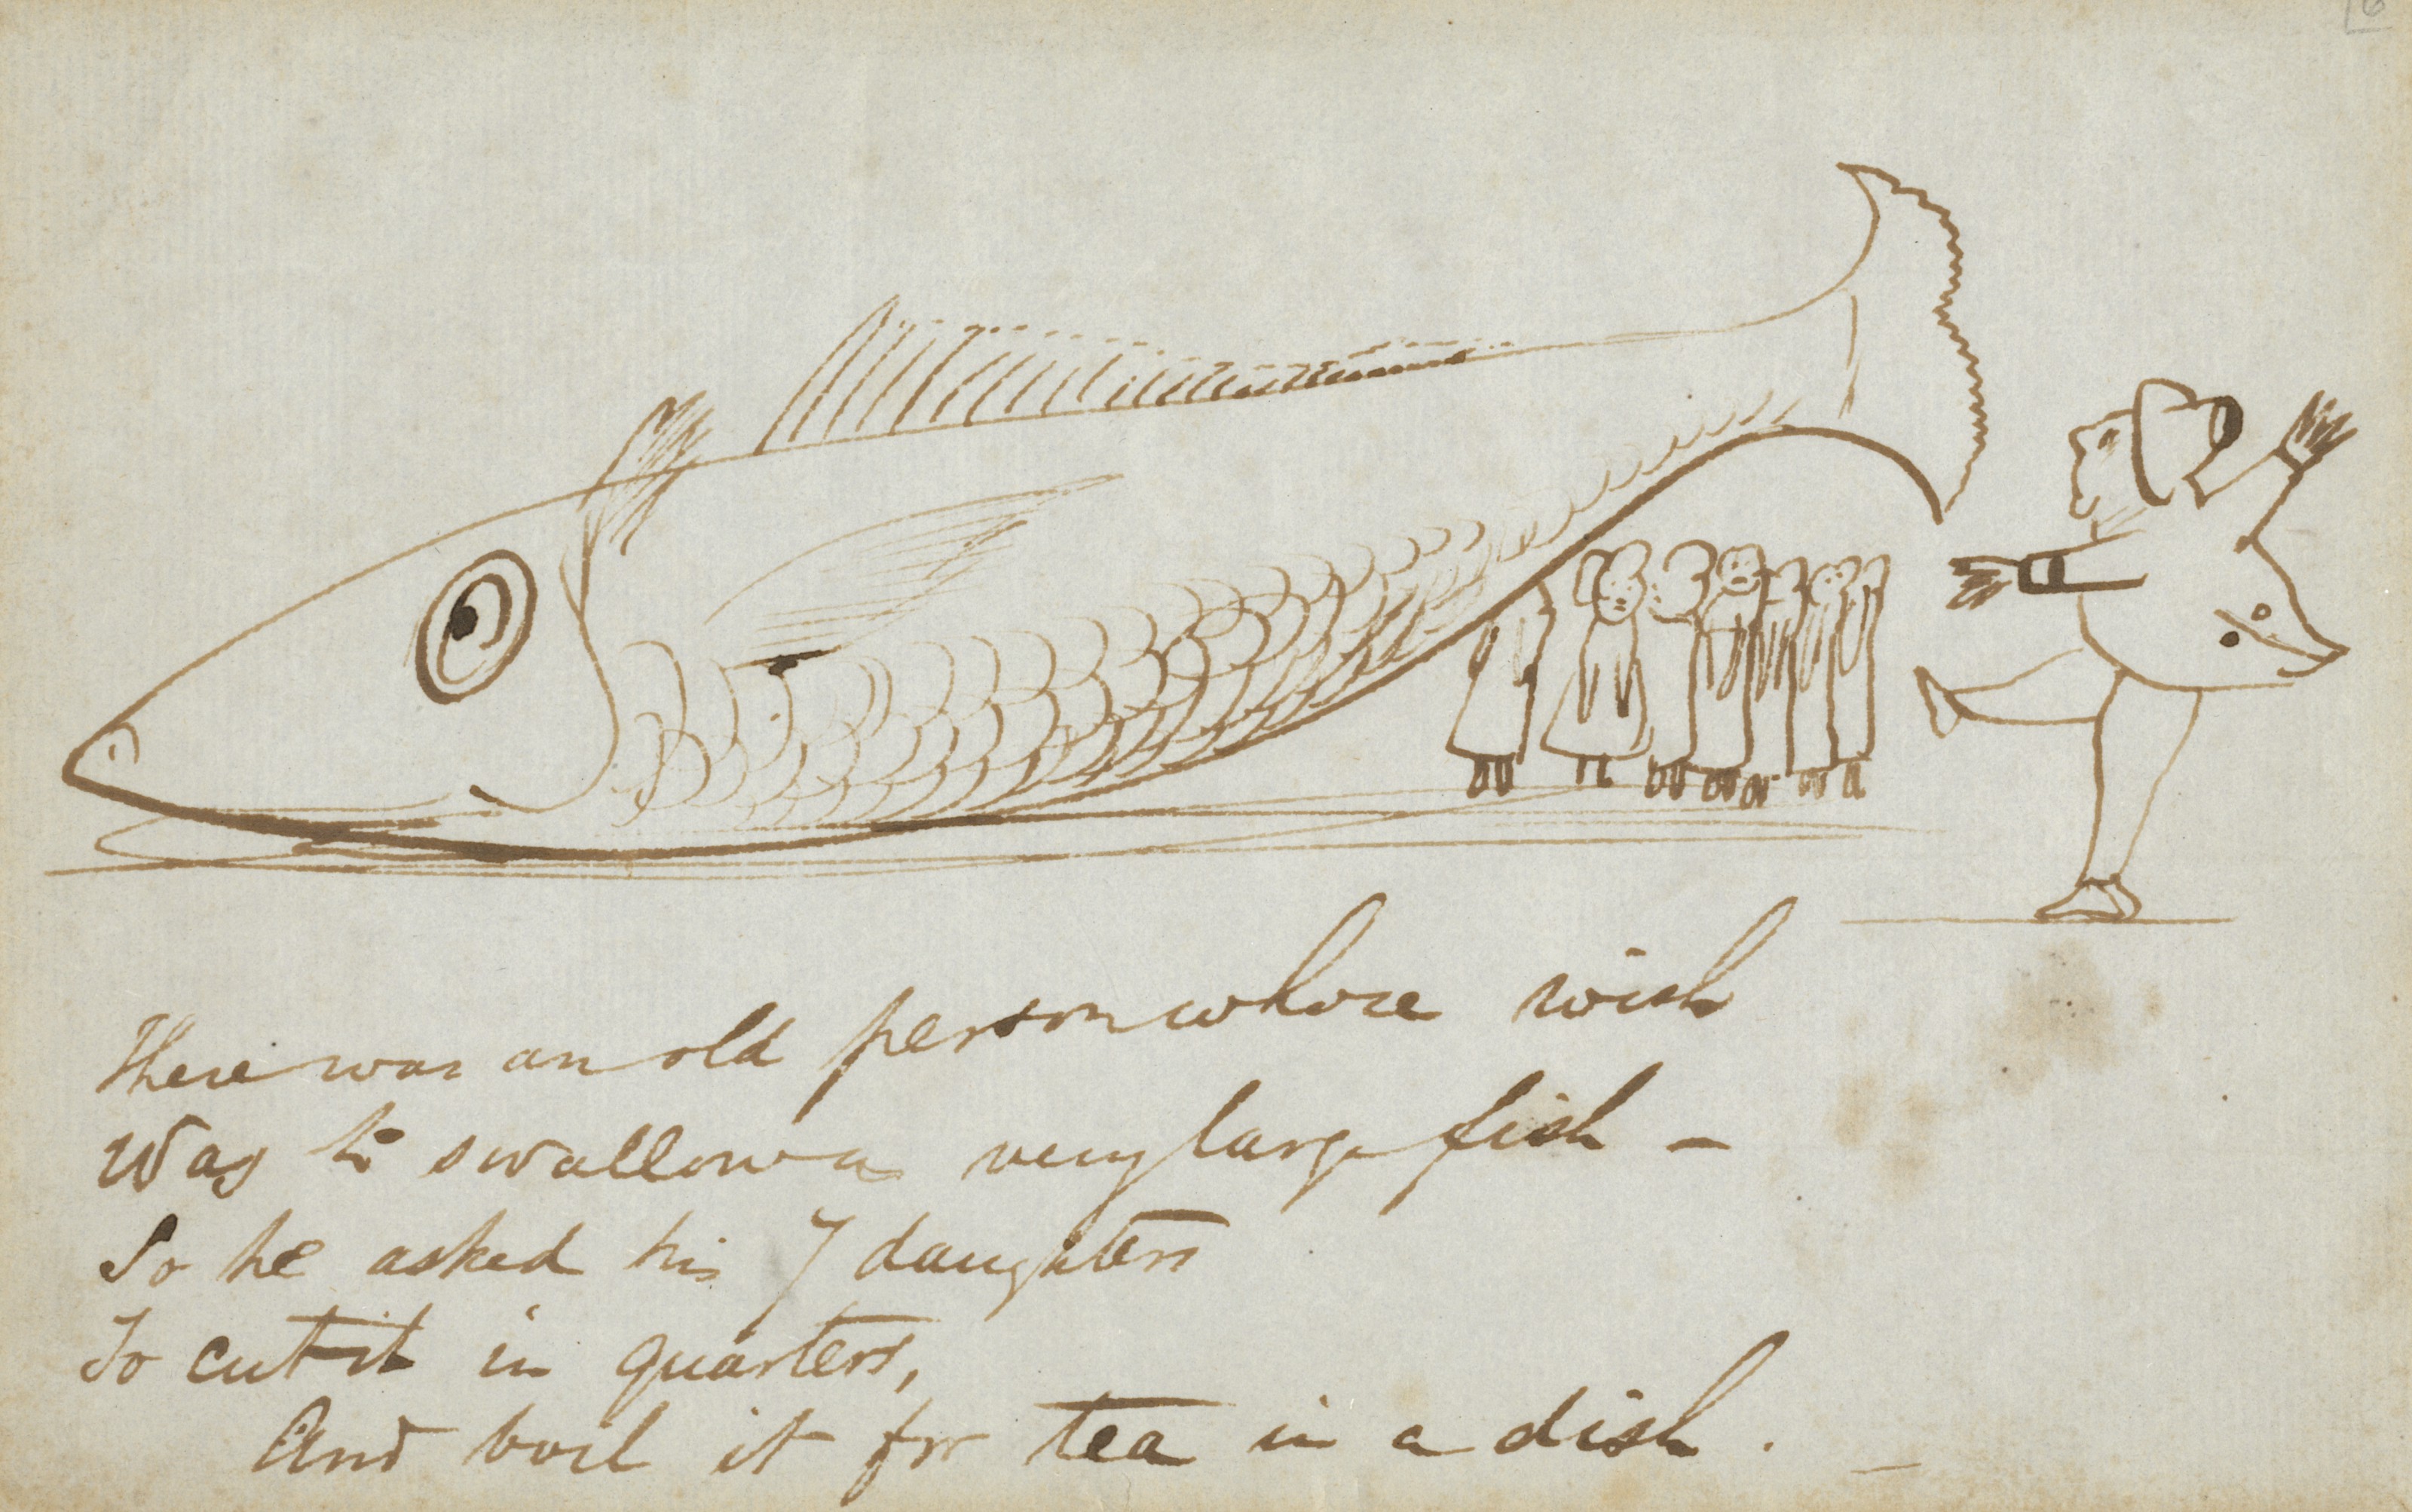 There was an old person whose wish
Was to swallow a very large fish –
So he asked his 7 daughters
To cut it in quarters,
And boil it for tea in a dish. –